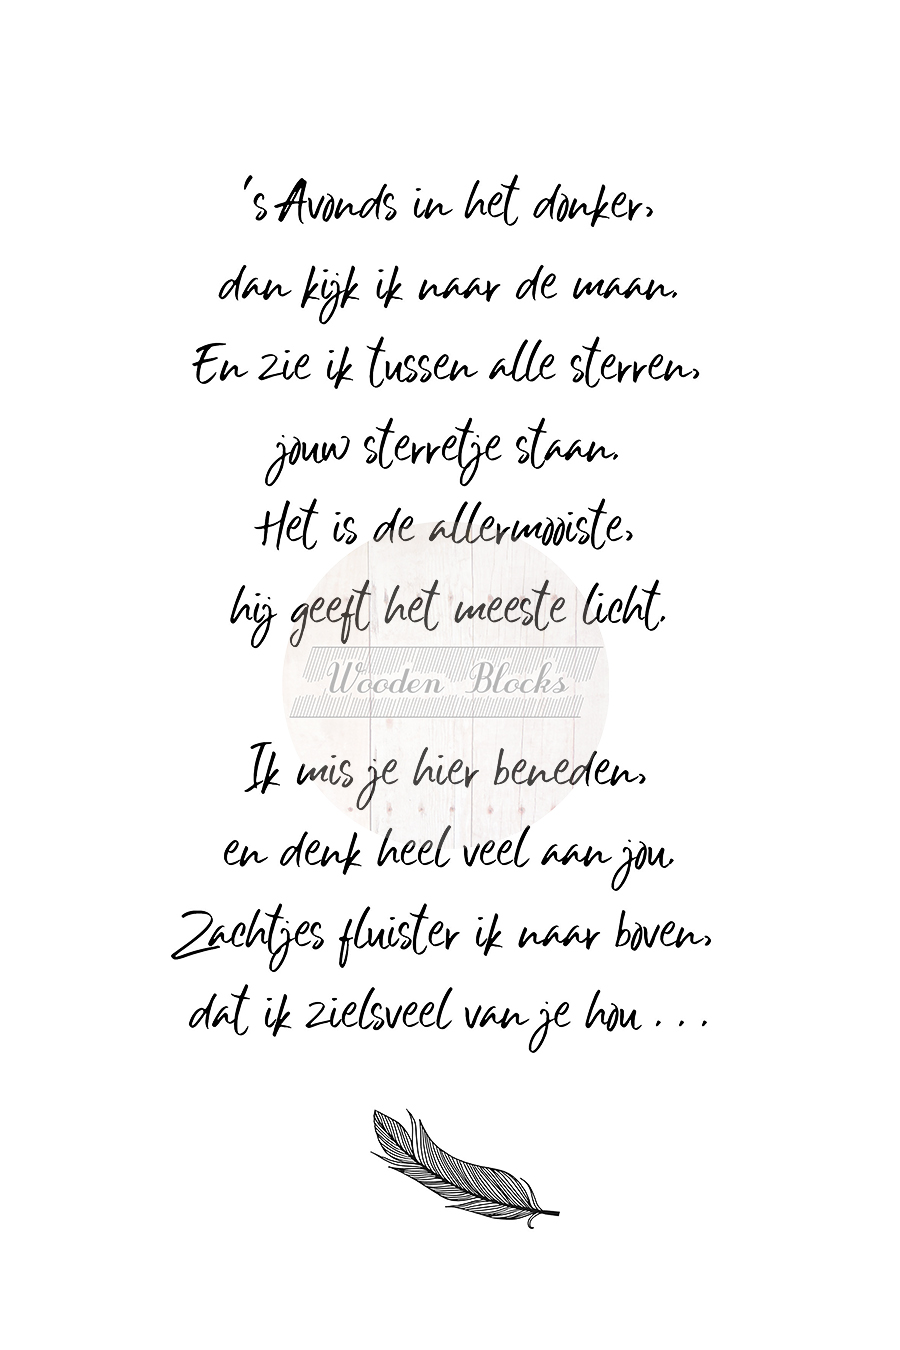 's Avonds in het donker,
dan kijk ik naar de maan.
En zie ik tussen alle sterren,
jouw sterretje staan.
Het is de allermooiste,
hij geeft het meeste licht.
Wooden Blocks
Ik mis je hier beneden,
en denk heel veel aan jou.
Zachtjes fluister ik naar boven,
dat ik zielsveel van je hou . . .